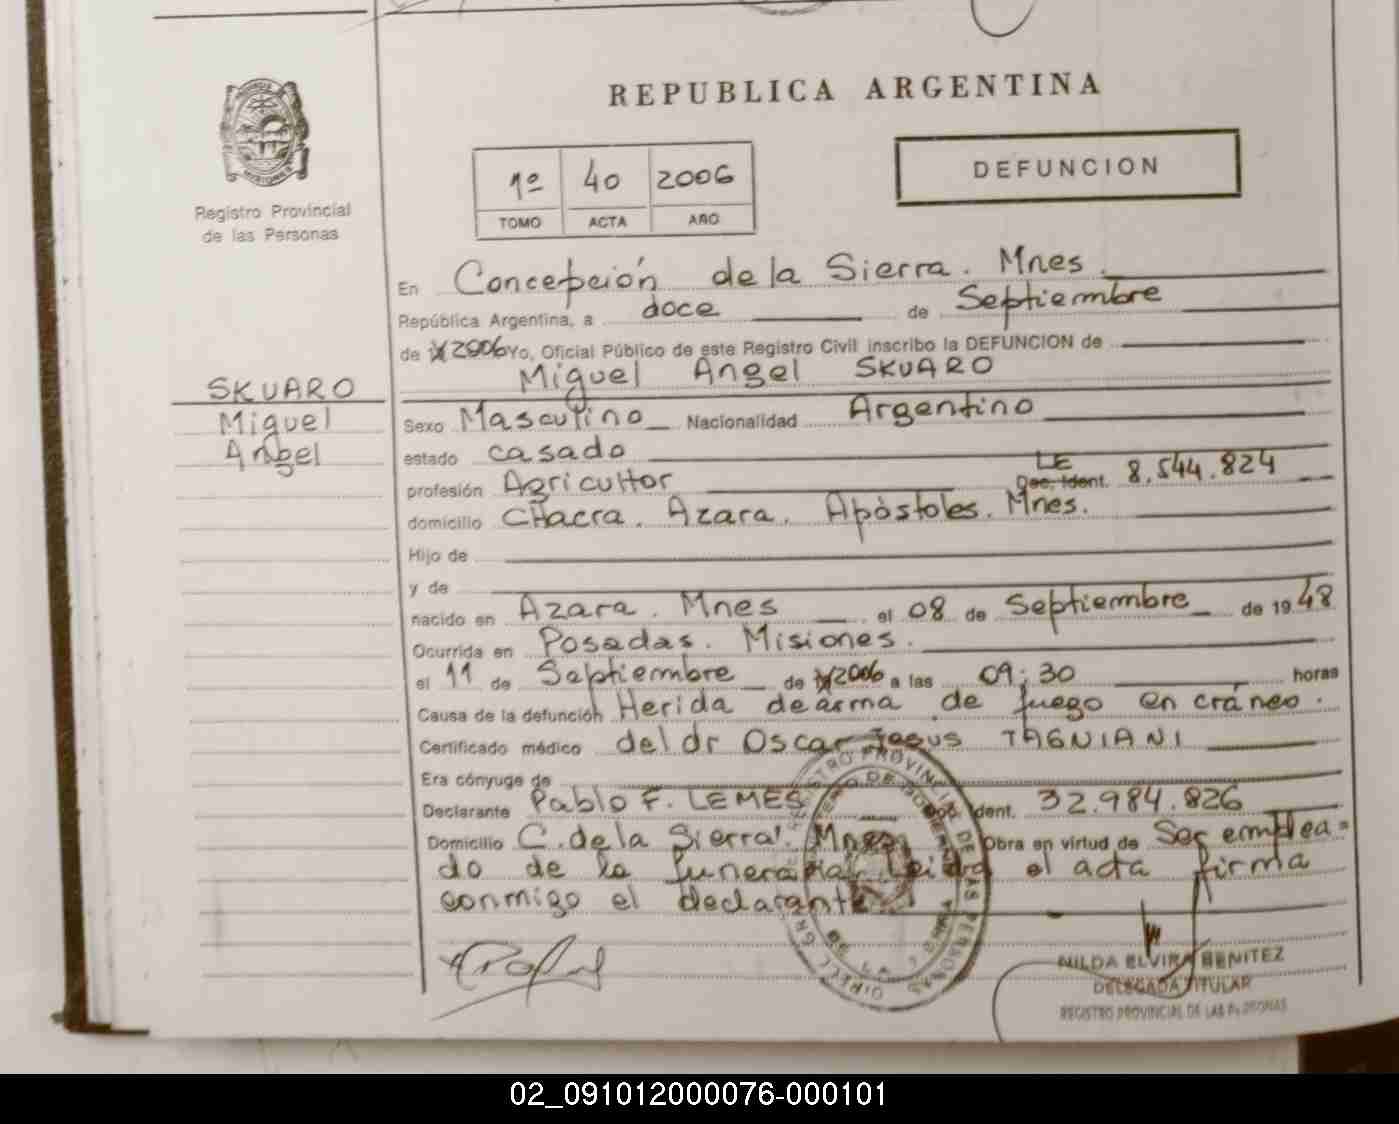 REPUBLICA ARGENTINA
1º 40 2006
TOMO ACTA AÑO
DEFUNCION
Registro Provincial
de las Personas
En Concepción de la Sierra. Mnes.
República Argentina, a doce de Septiembre
de 2006 Yo, Oficial Público de este Registro Civil inscribo la DEFUNCION de
Miguel Angel SKUARO
SKUARO
Miguel
Angel
Sexo Masculino Nacionalidad Argentino
estado casado
profesión Agricultor LE Doc. Ident. 8.544.824
domicilio CHacra. Azara. Apóstoles. Mnes.
Hijo de
y de
nacido en Azara. Mnes el 08 de Septiembre de 1948
Ocurrida en Posadas. Misiones.
el 11 de Septiembre de 2006 a las 09:30 horas
Causa de la defunción Herida de arma de fuego en cráneo.
Certificado médico del dr Oscar Jesus TAGNIANI
Era cónyuge de
Declarante Pablo F. LEMES Doc. Ident. 32.984.826
Domicilio C. de la Sierra. Mnes Obra en virtud de Ser emplea=
do de la funeraria. Leida el acta firma
conmigo el declarante
NILDA ELVIRA BENITEZ
DELEGADA TITULAR
REGISTRO PROVINCIAL DE LAS PERSONAS
02_091012000076-000101